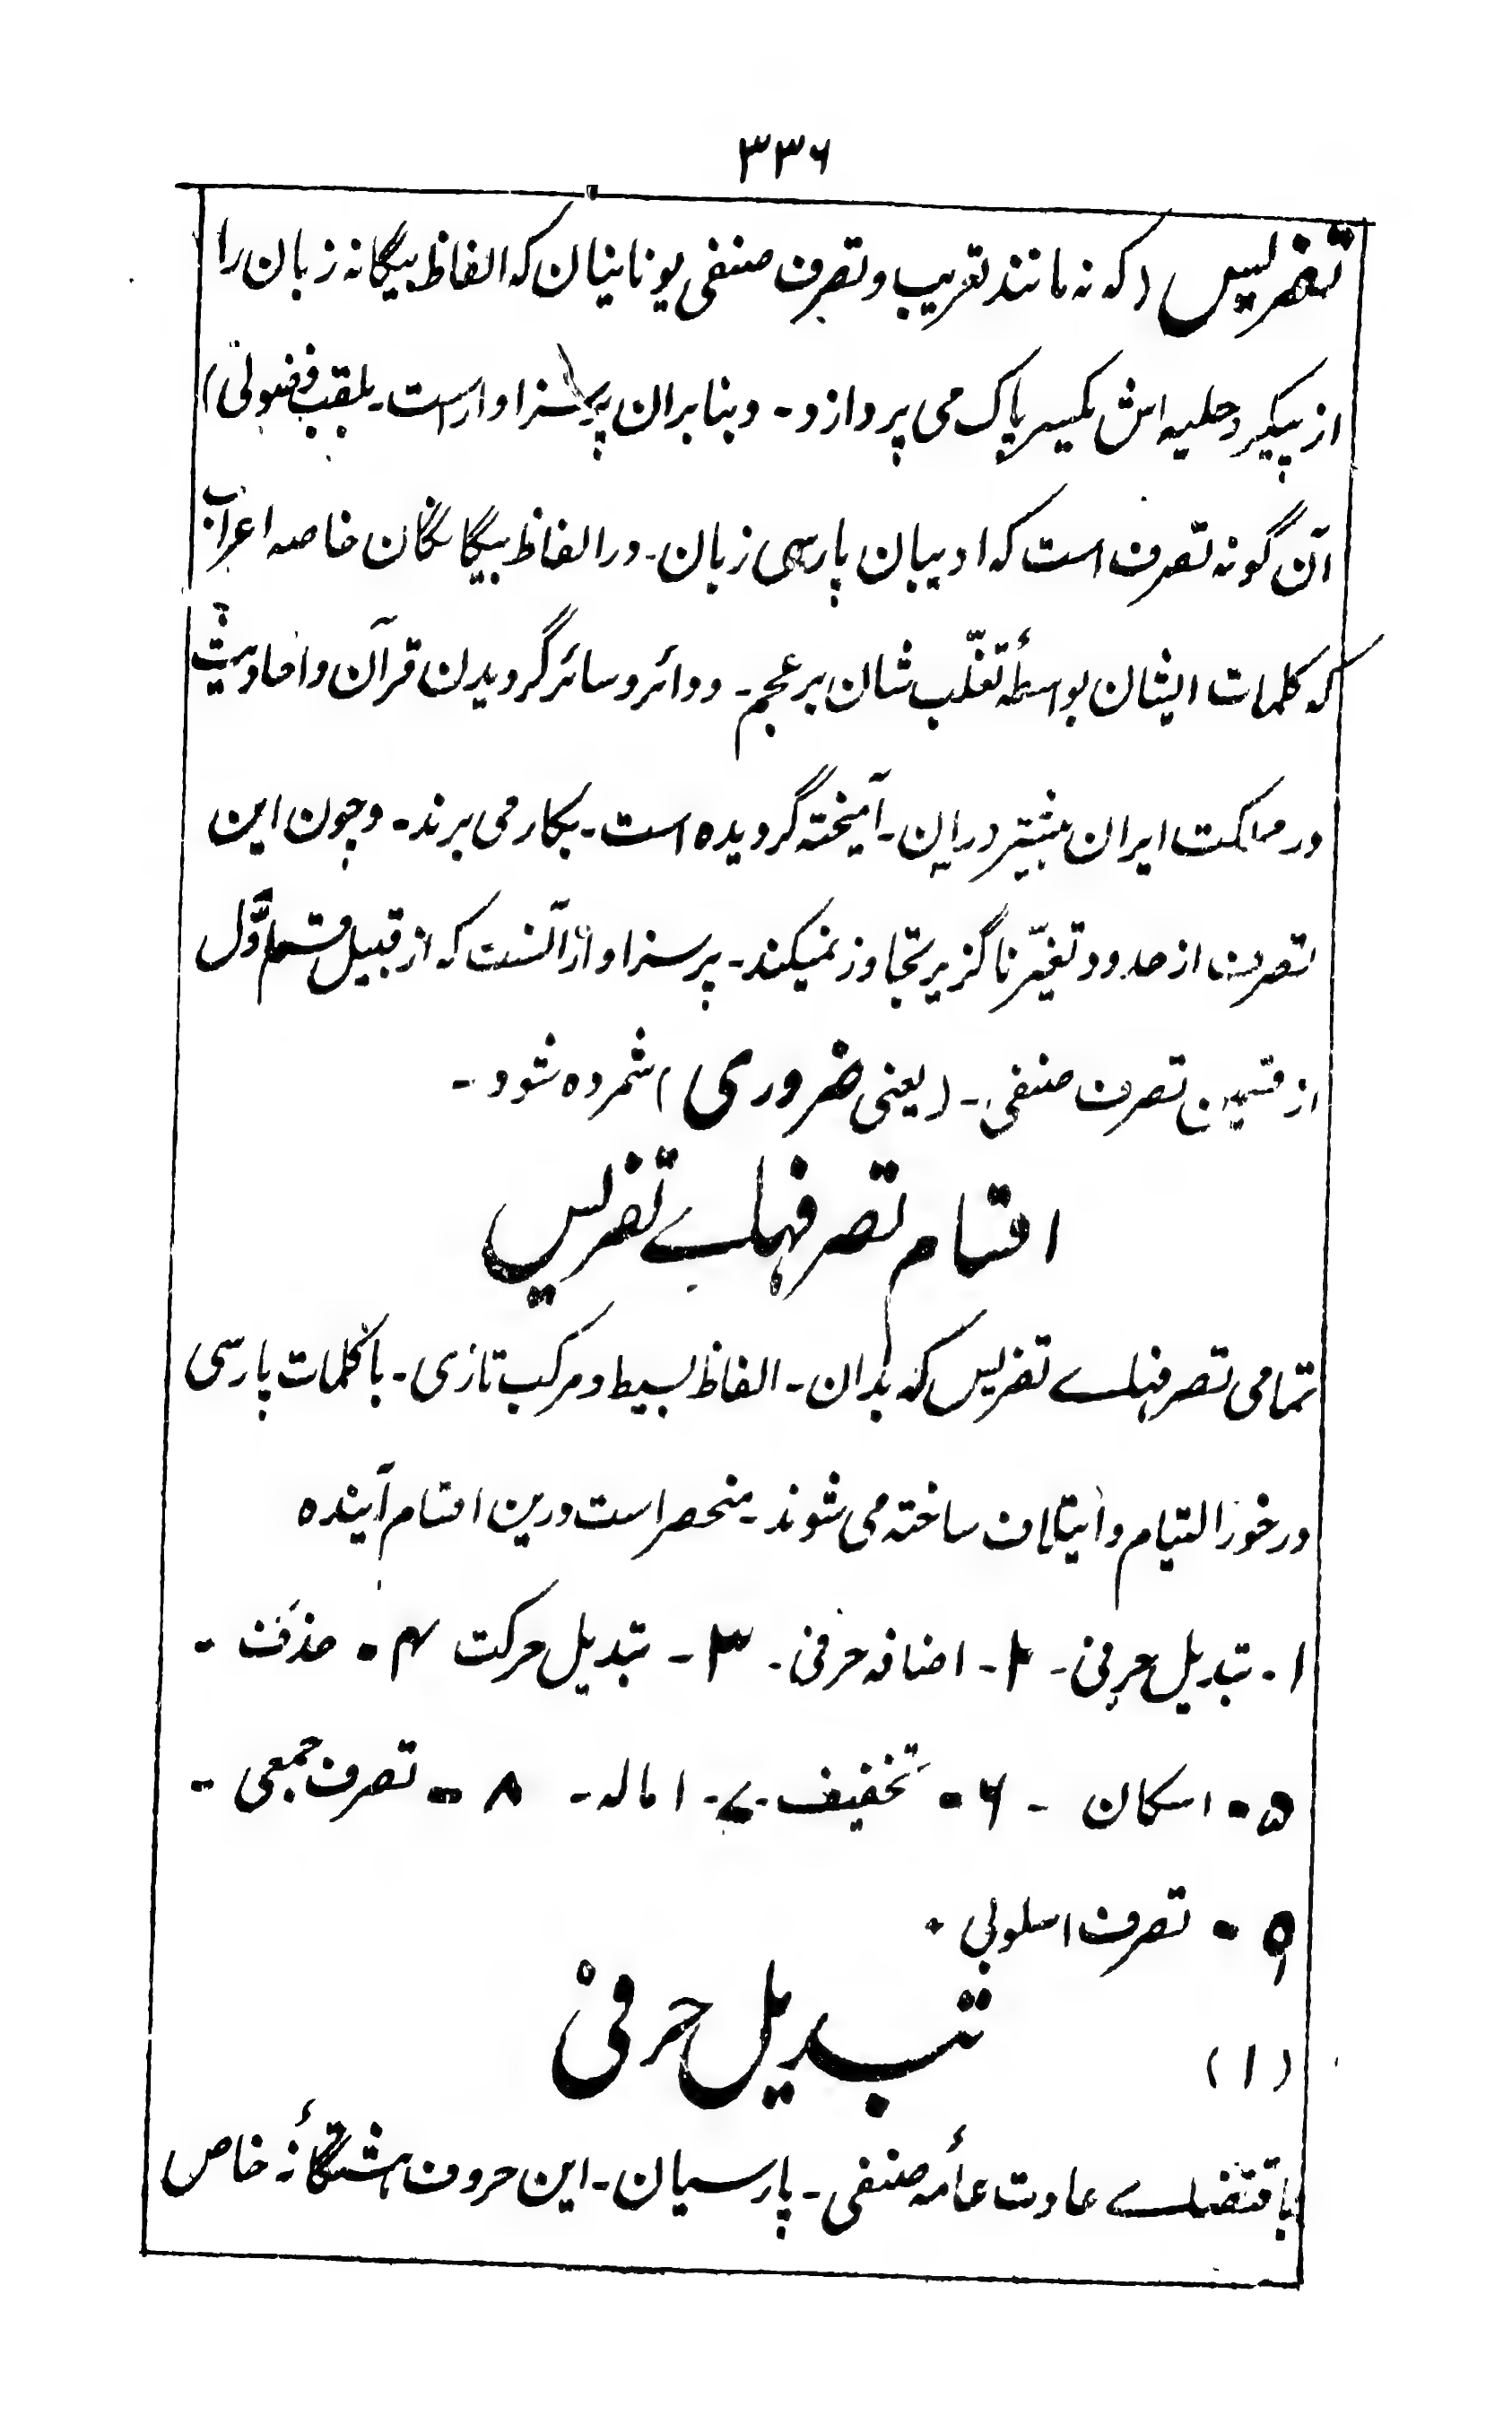 ۳۳۶
تفریس (که نه مانند تعریب و تصرف صنفی یونانیان که الفاظ بیگانه زبان را
از پیکر و حلیه اش یکسر پاک می پردازد - و بنابران پر سزاوار است - بلقب فضولی)
آن گونه تصرف است که ادیبان پارسی زبان - در الفاظ بیگانگان خاصه اعراب
که کلمات ایشان بواسطهٔ تغلّب شان بر عجم - و دائر و سائر گردیدن قرآن و احادیث
در مملکت ایران بیشتر دران - آمیخته گردیده است - بکار می برند - و چون این
تصرف از حدود تغیّر ناگزیر تجاوز نمیکند - پر سزاوار آنست که از قبیل قسم اوّل
از قسمین تصرف صنفی - (یعنی ضروری) شمرده شود -
اقسام تصرفهاے تفریس
تمامی تصرفهاے تفریس که بدان - الفاظ بسیط و مرکب تازی - با کلمات پارسی
در خور التیام و ایتلاف ساخته می شوند - منحصر است درین اقسام آینده
۱ - تبدیل حرفی - ۲ - اضافه حرفی - ۳ - تبدیل حرکت ۴ - حذف -
۵ - اسکان - ۶ - تخفیف - ۷ - اماله - ۸ - تصرف جمعی -
۹ - تصرف اسلوبی -
(۱) تبدیل حرفی
باقتضاے عادت عامهٔ صنفی - پارسیان - این حروف هشتگانهٔ خاص